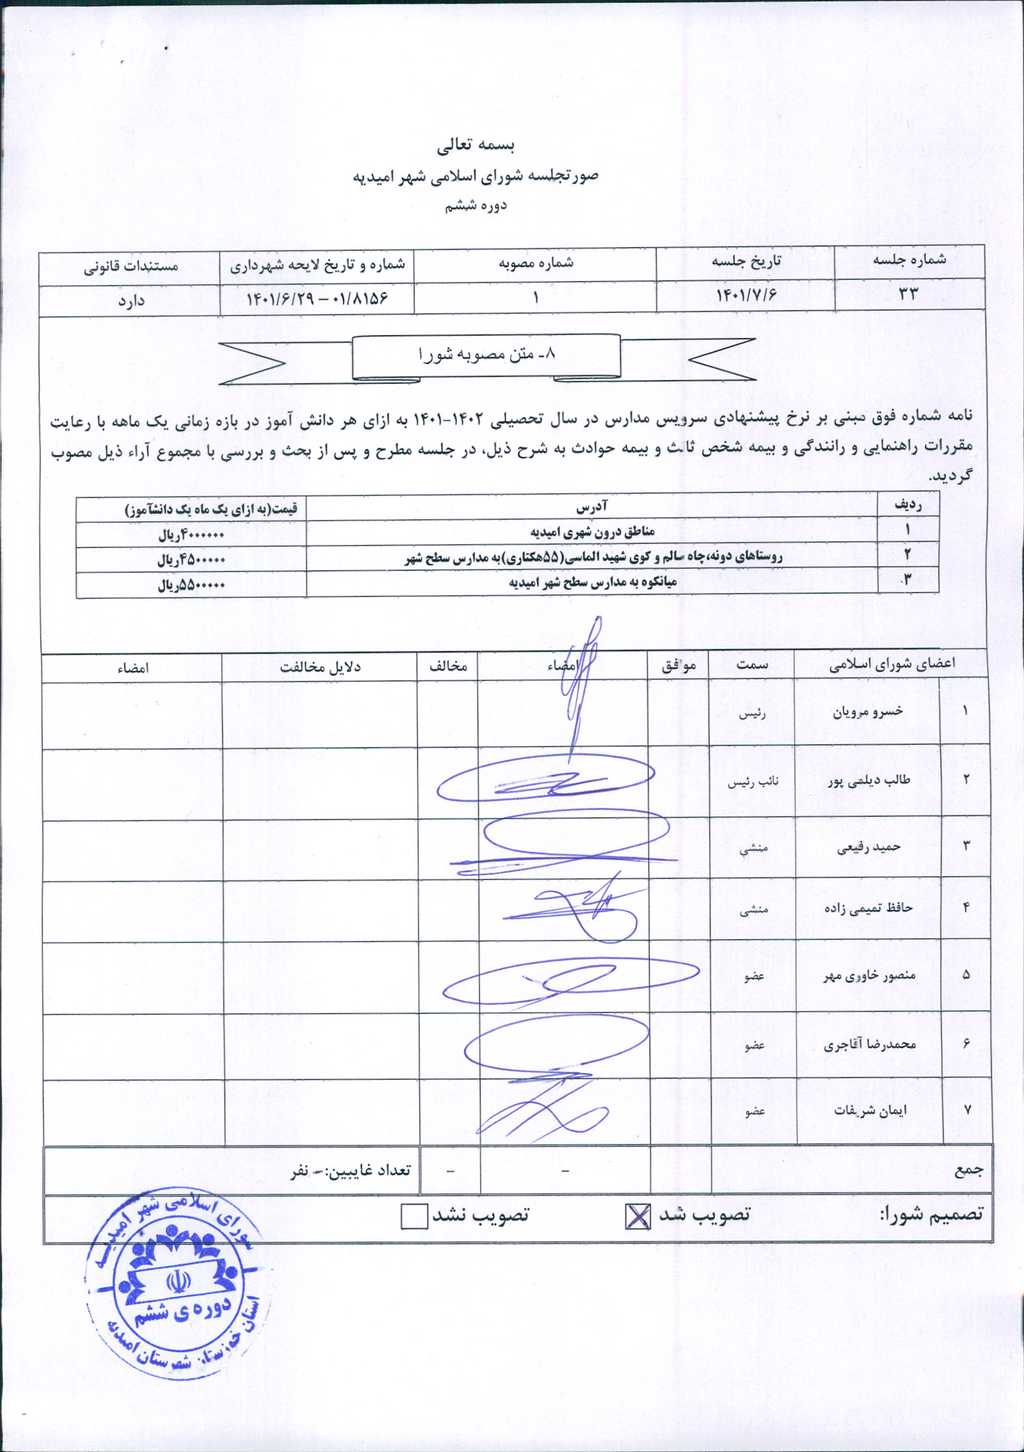 بسمه تعالی
صورتجلسه شورای اسلامی شهر امیدیه
دوره ششم
شماره جلسه تاریخ جلسه شماره مصوبه شماره و تاریخ لایحه شهرداری مستندات قانونی
۳۳ ۱۴۰۱/۷/۶ ۱ ۰۱/۸۱۵۶ – ۱۴۰۱/۶/۲۹ دارد
۸ـ متن مصوبه شورا
نامه شماره فوق مبنی بر نرخ پیشنهادی سرویس مدارس در سال تحصیلی ۱۴۰۲-۱۴۰۱ به ازای هر دانش آموز در بازه زمانی یک ماهه با رعایت
مقررات راهنمایی و رانندگی و بیمه شخص ثالث و بیمه حوادث به شرح ذیل، در جلسه مطرح و پس از بحث و بررسی با مجموع آراء ذیل مصوب
گردید.
ردیف آدرس قیمت(به ازای یک ماه یک دانشآموز)
۱ مناطق درون شهری امیدیه ۴۰۰۰۰۰۰ریال
۲ روستاهای دونه،چاه سالم و کوی شهید الماسی(۵۵هکتاری)به مدارس سطح شهر ۴۵۰۰۰۰۰ریال
۳ میانکوه به مدارس سطح شهر امیدیه ۵۵۰۰۰۰۰ریال
اعضای شورای اسلامی سمت موافق امضاء مخالف دلایل مخالفت امضاء
۱ خسرو مرویان رئیس
۲ طالب دیلمی پور نائب رئیس
۳ حمید رفیعی منشی
۴ حافظ تمیمی زاده منشی
۵ منصور خاوری مهر عضو
۶ محمدرضا آقاجری عضو
۷ ایمان شریفات عضو
جمع - - تعداد غایبین:- نفر
تصمیم شورا: تصویب شد تصویب نشد
شورای اسلامی شهر امیدیه
دوره ی ششم
استان خوزستان شهرستان امیدیه